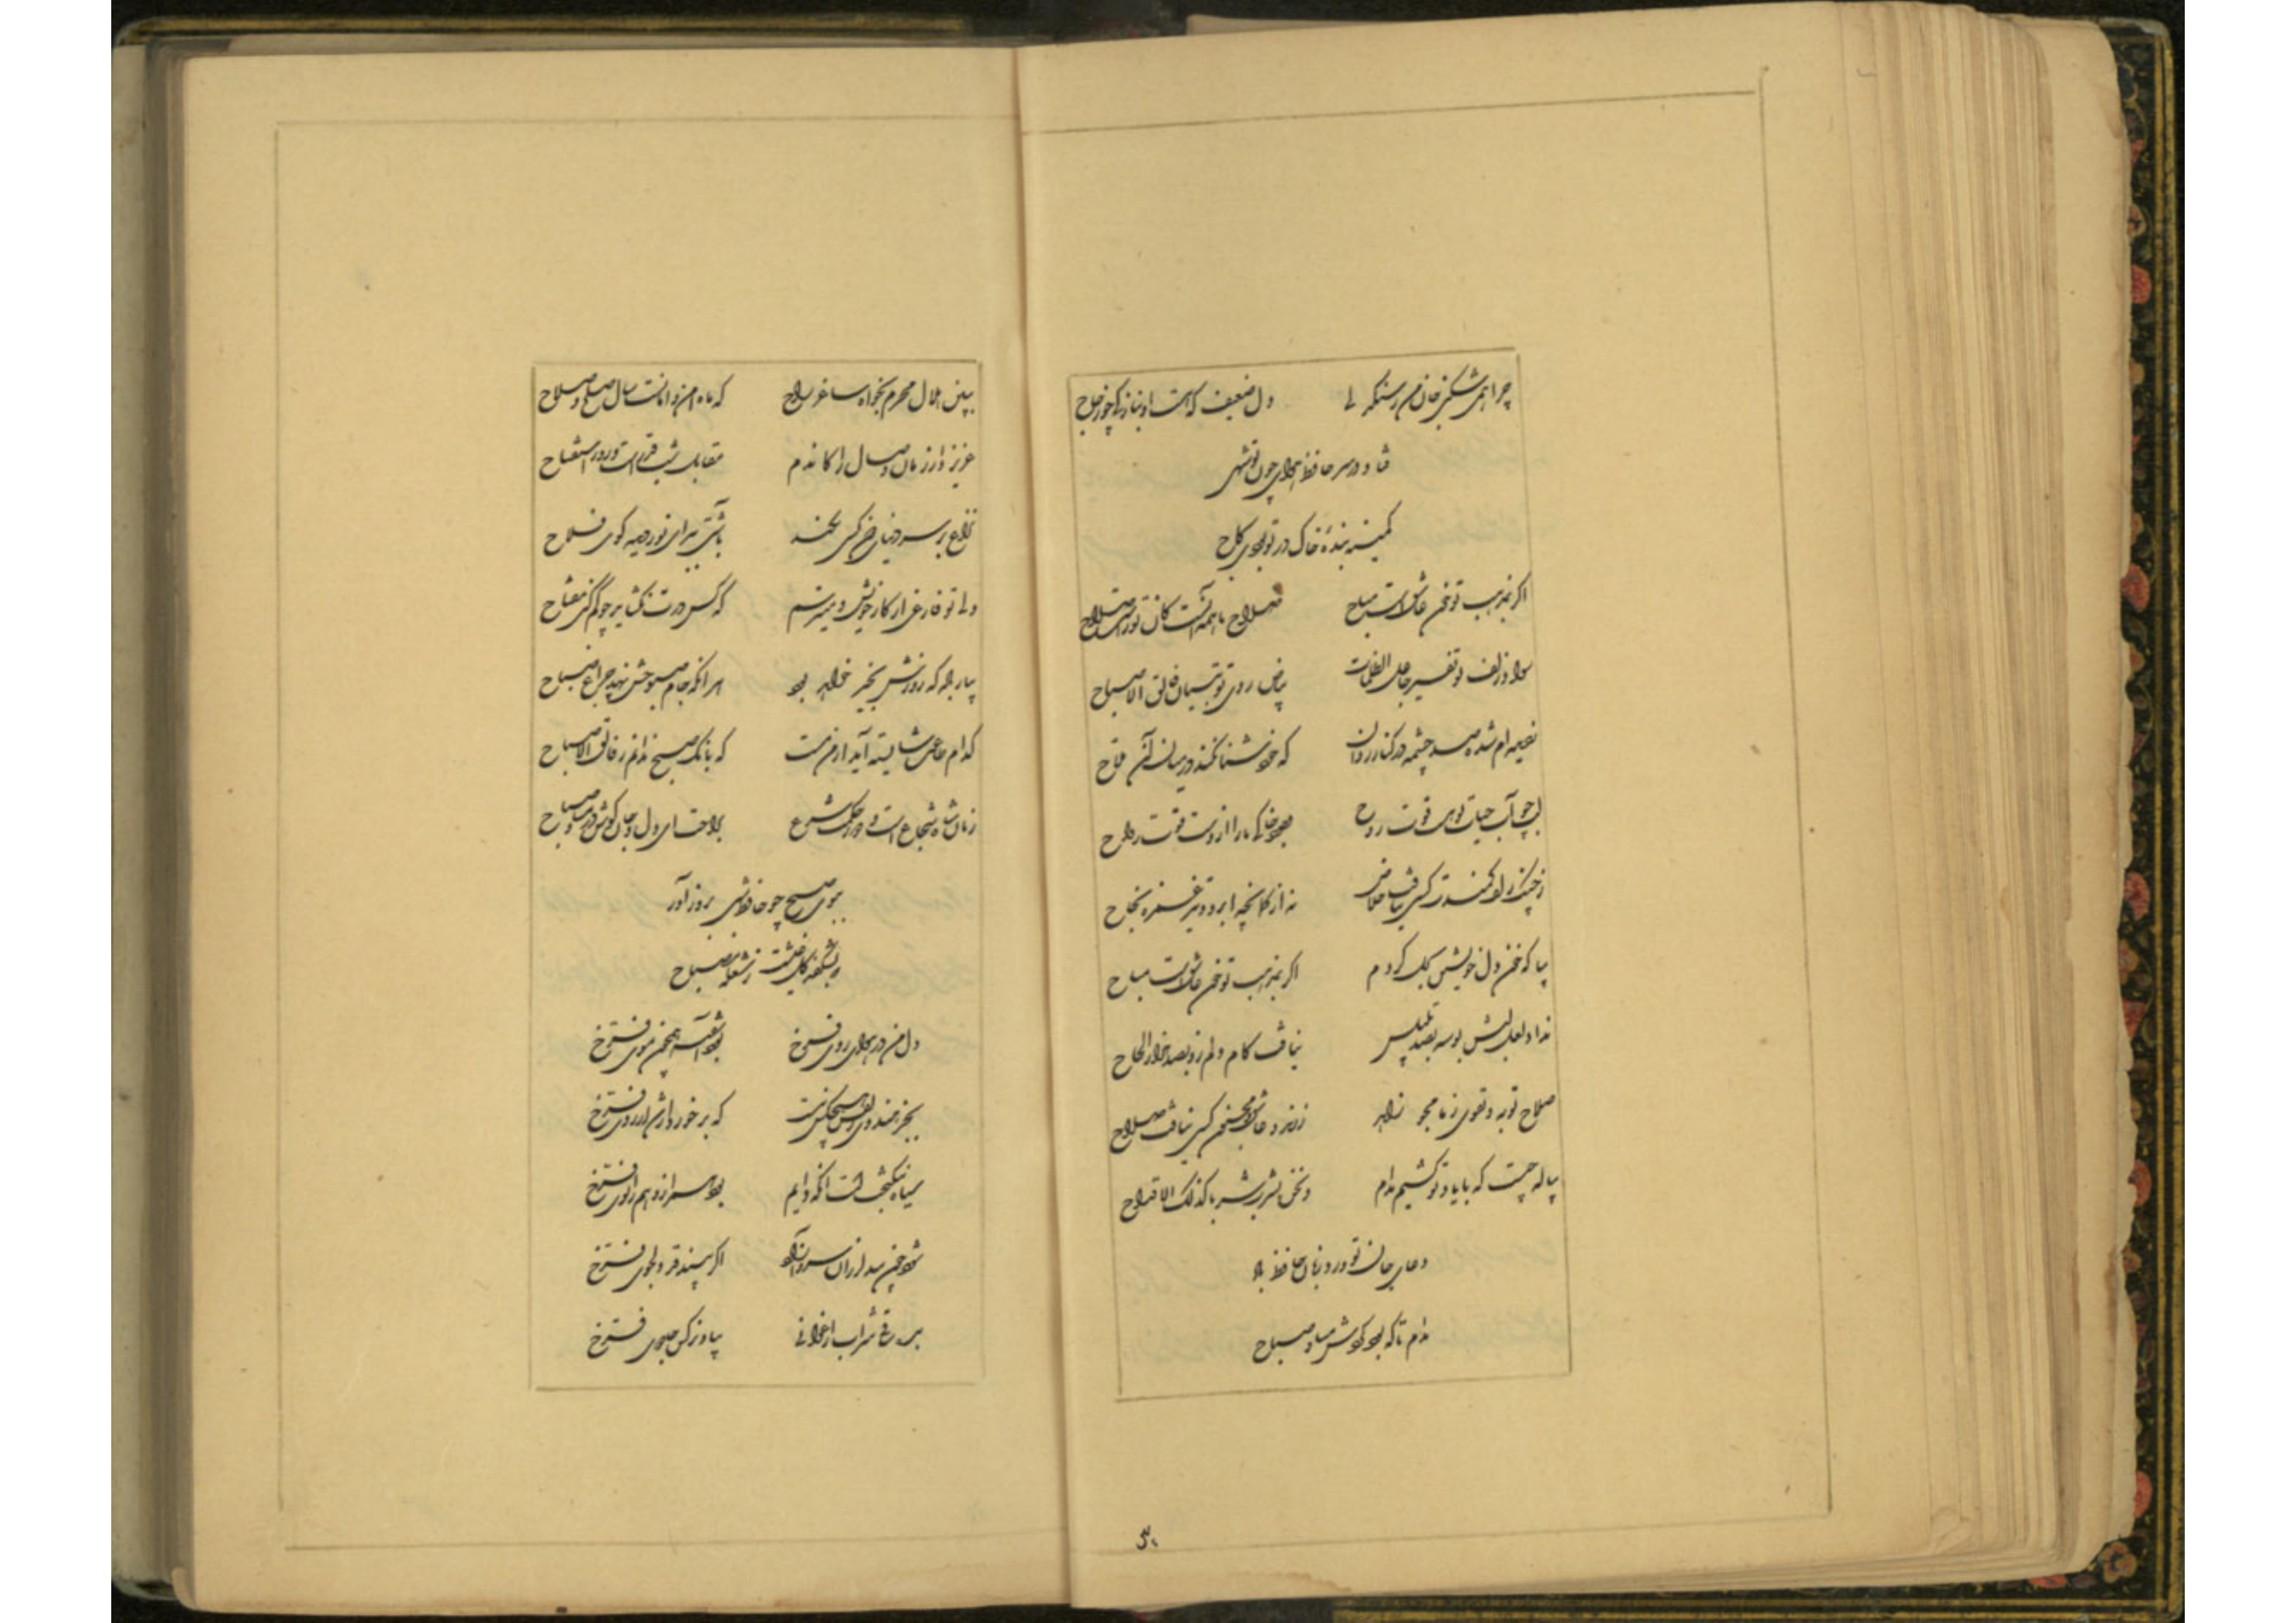 چرا همی شکنی جان من ز سنگدلی دل ضعیف که هست او بنازکی چو زجاج
فتاد در سر حافظ هوای چون تو شهی
کمینه بنده خاک در تو بودی کاج
اگر بمذهب تو خون عاشقست مباح صلاح ما همه آنست کان تراست صلاح
سواد زلف تو تفسیر جاعل الظلمات بیاض روی تو تبیان فالق الاصباح
ز دیده‌ام شده صد چشمه در کنار روان که خود شنا نکند در میان آن ملاح
لب چو آب حیات تو هست قوت روح وجود خاکی ما را ازوست قوت راح
ز چین زلف کمندت کسی نیافت خلاص نه از کمانچه ابرو و تیر غمزه نجاح
بیا که خون دل خویشتن بحل کردم اگر بمذهب تو خون عاشقست مباح
نداد لعل لبش بوسه بصد تلبیس نیافت کام دلم زو بصد هزار الحاح
صلاح توبه و تقوی ز ما مجو زاهد ز رند و عاشق و مجنون کسی نیافت صلاح
پیاله چیست که با یاد تو کشیم مدام و نحن نشرب شربا کذلک الاقداح
دعای جان تو ورد زبان حافظ باد
مدام تا که بود گردش مسا و صباح
ببین هلال محرم بخواه ساغر راح که ماه امن و امانست سال صلح و صلاح
عزیز دار زمان وصال را کاندم مقابل شب قدر است و روز استفتاح
نزاع بر سر دنیای دون کسی نکند بآشتی ببر ای نور دیده گوی فلاح
دلا تو فارغی از کار خویش و میترسم که کس درت نگشاید چو گم کنی مفتاح
بیار باده که روزش بخیر خواهد بود هر آنکه جام صبوحش نهد چراغ صباح
کدام طاعت شایسته آید از من مست که بانگ صبح ندانم ز فالق الاصباح
زمان شاه شجاع است و دور حکمت و شرع براحت ای دل و جان کوش در مسا و صباح
ببوی صبح چو حافظ شبی بروز آور
که بشکفد گل بختت ز شعله مصباح
دل من در هوای روی فرخ بود آشفته همچون موی فرخ
بجز هندوی زلفش هیچکس نیست که برخوردار شد از روی فرخ
سیاه نیکبخت است آنکه دایم بود همراز و هم زانوی فرخ
شود چون بید لرزان سرو آزاد اگر بیند قد دلجوی فرخ
بده ساقی شراب ارغوانی بیاد نرگس جادوی فرخ